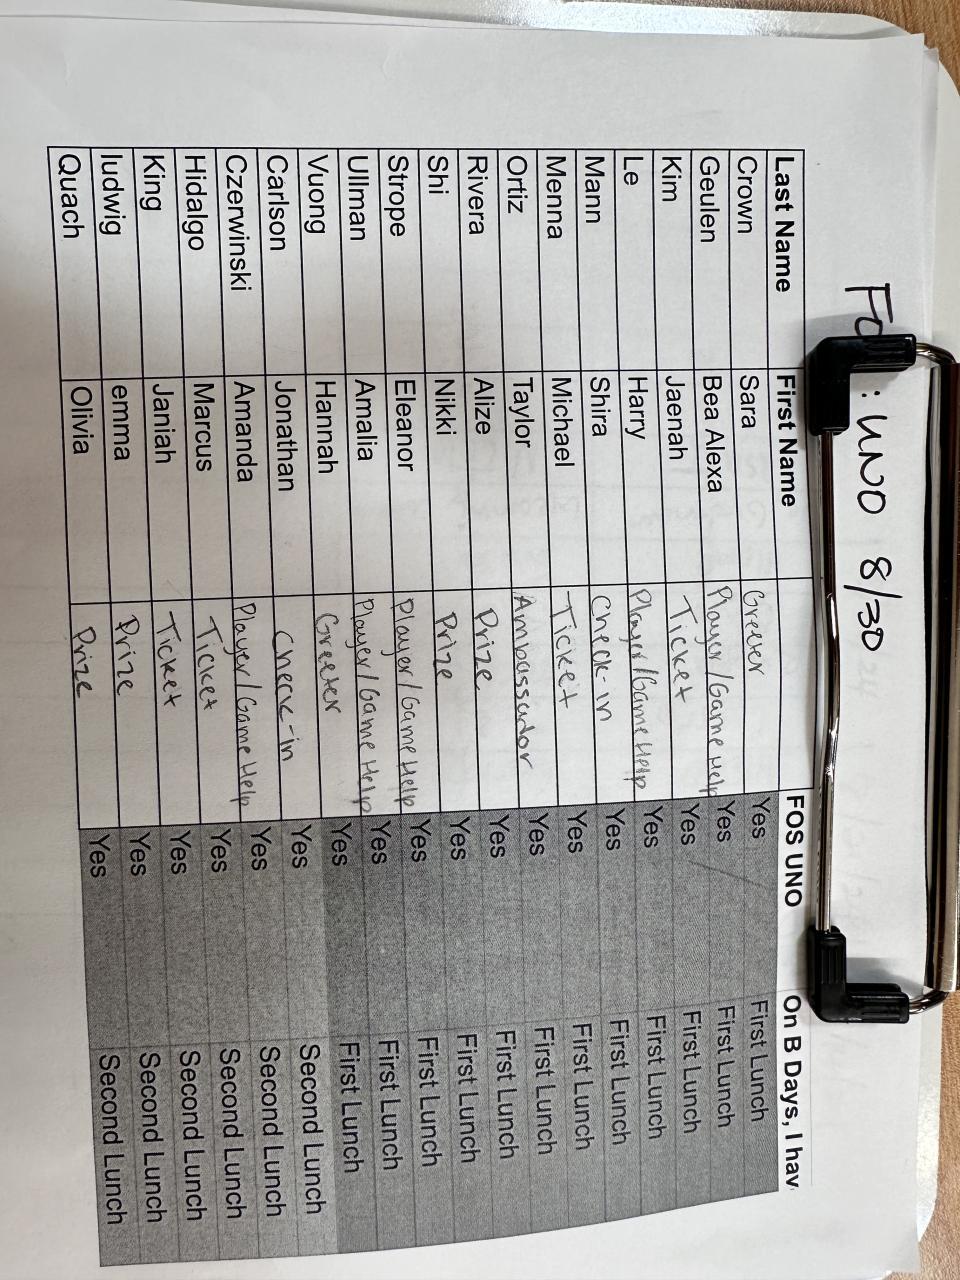 : UNO 8/30
Last Name First Name FOS UNO On B Days, I hav
Crown Sara Greeter Yes First Lunch
Geulen Bea Alexa Player/Game Help Yes First Lunch
Kim Jaenah Ticket Yes First Lunch
Le Harry Player/Game Help Yes First Lunch
Mann Shira Check-in Yes First Lunch
Menna Michael Ticket Yes First Lunch
Ortiz Taylor Ambassador Yes First Lunch
Rivera Alize Prize Yes First Lunch
Shi Nikki Prize Yes First Lunch
Strope Eleanor Player/Game Help Yes First Lunch
Ullman Amalia Player/Game Help Yes First Lunch
Vuong Hannah Greeter Yes First Lunch
Carlson Jonathan Check-in Yes Second Lunch
Czerwinski Amanda Player/Game Help Yes Second Lunch
Hidalgo Marcus Ticket Yes Second Lunch
King Janiah Ticket Yes Second Lunch
ludwig emma Prize Yes Second Lunch
Quach Olivia Prize Yes Second Lunch